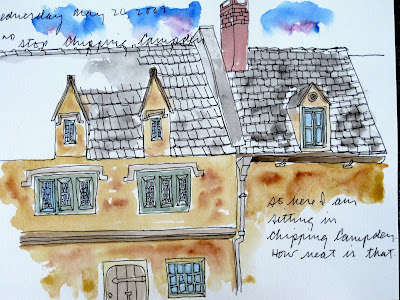 ednesday May 24
stop Chipping Campden
so here I am
sitting in
Chipping Campden.
How neat is that.